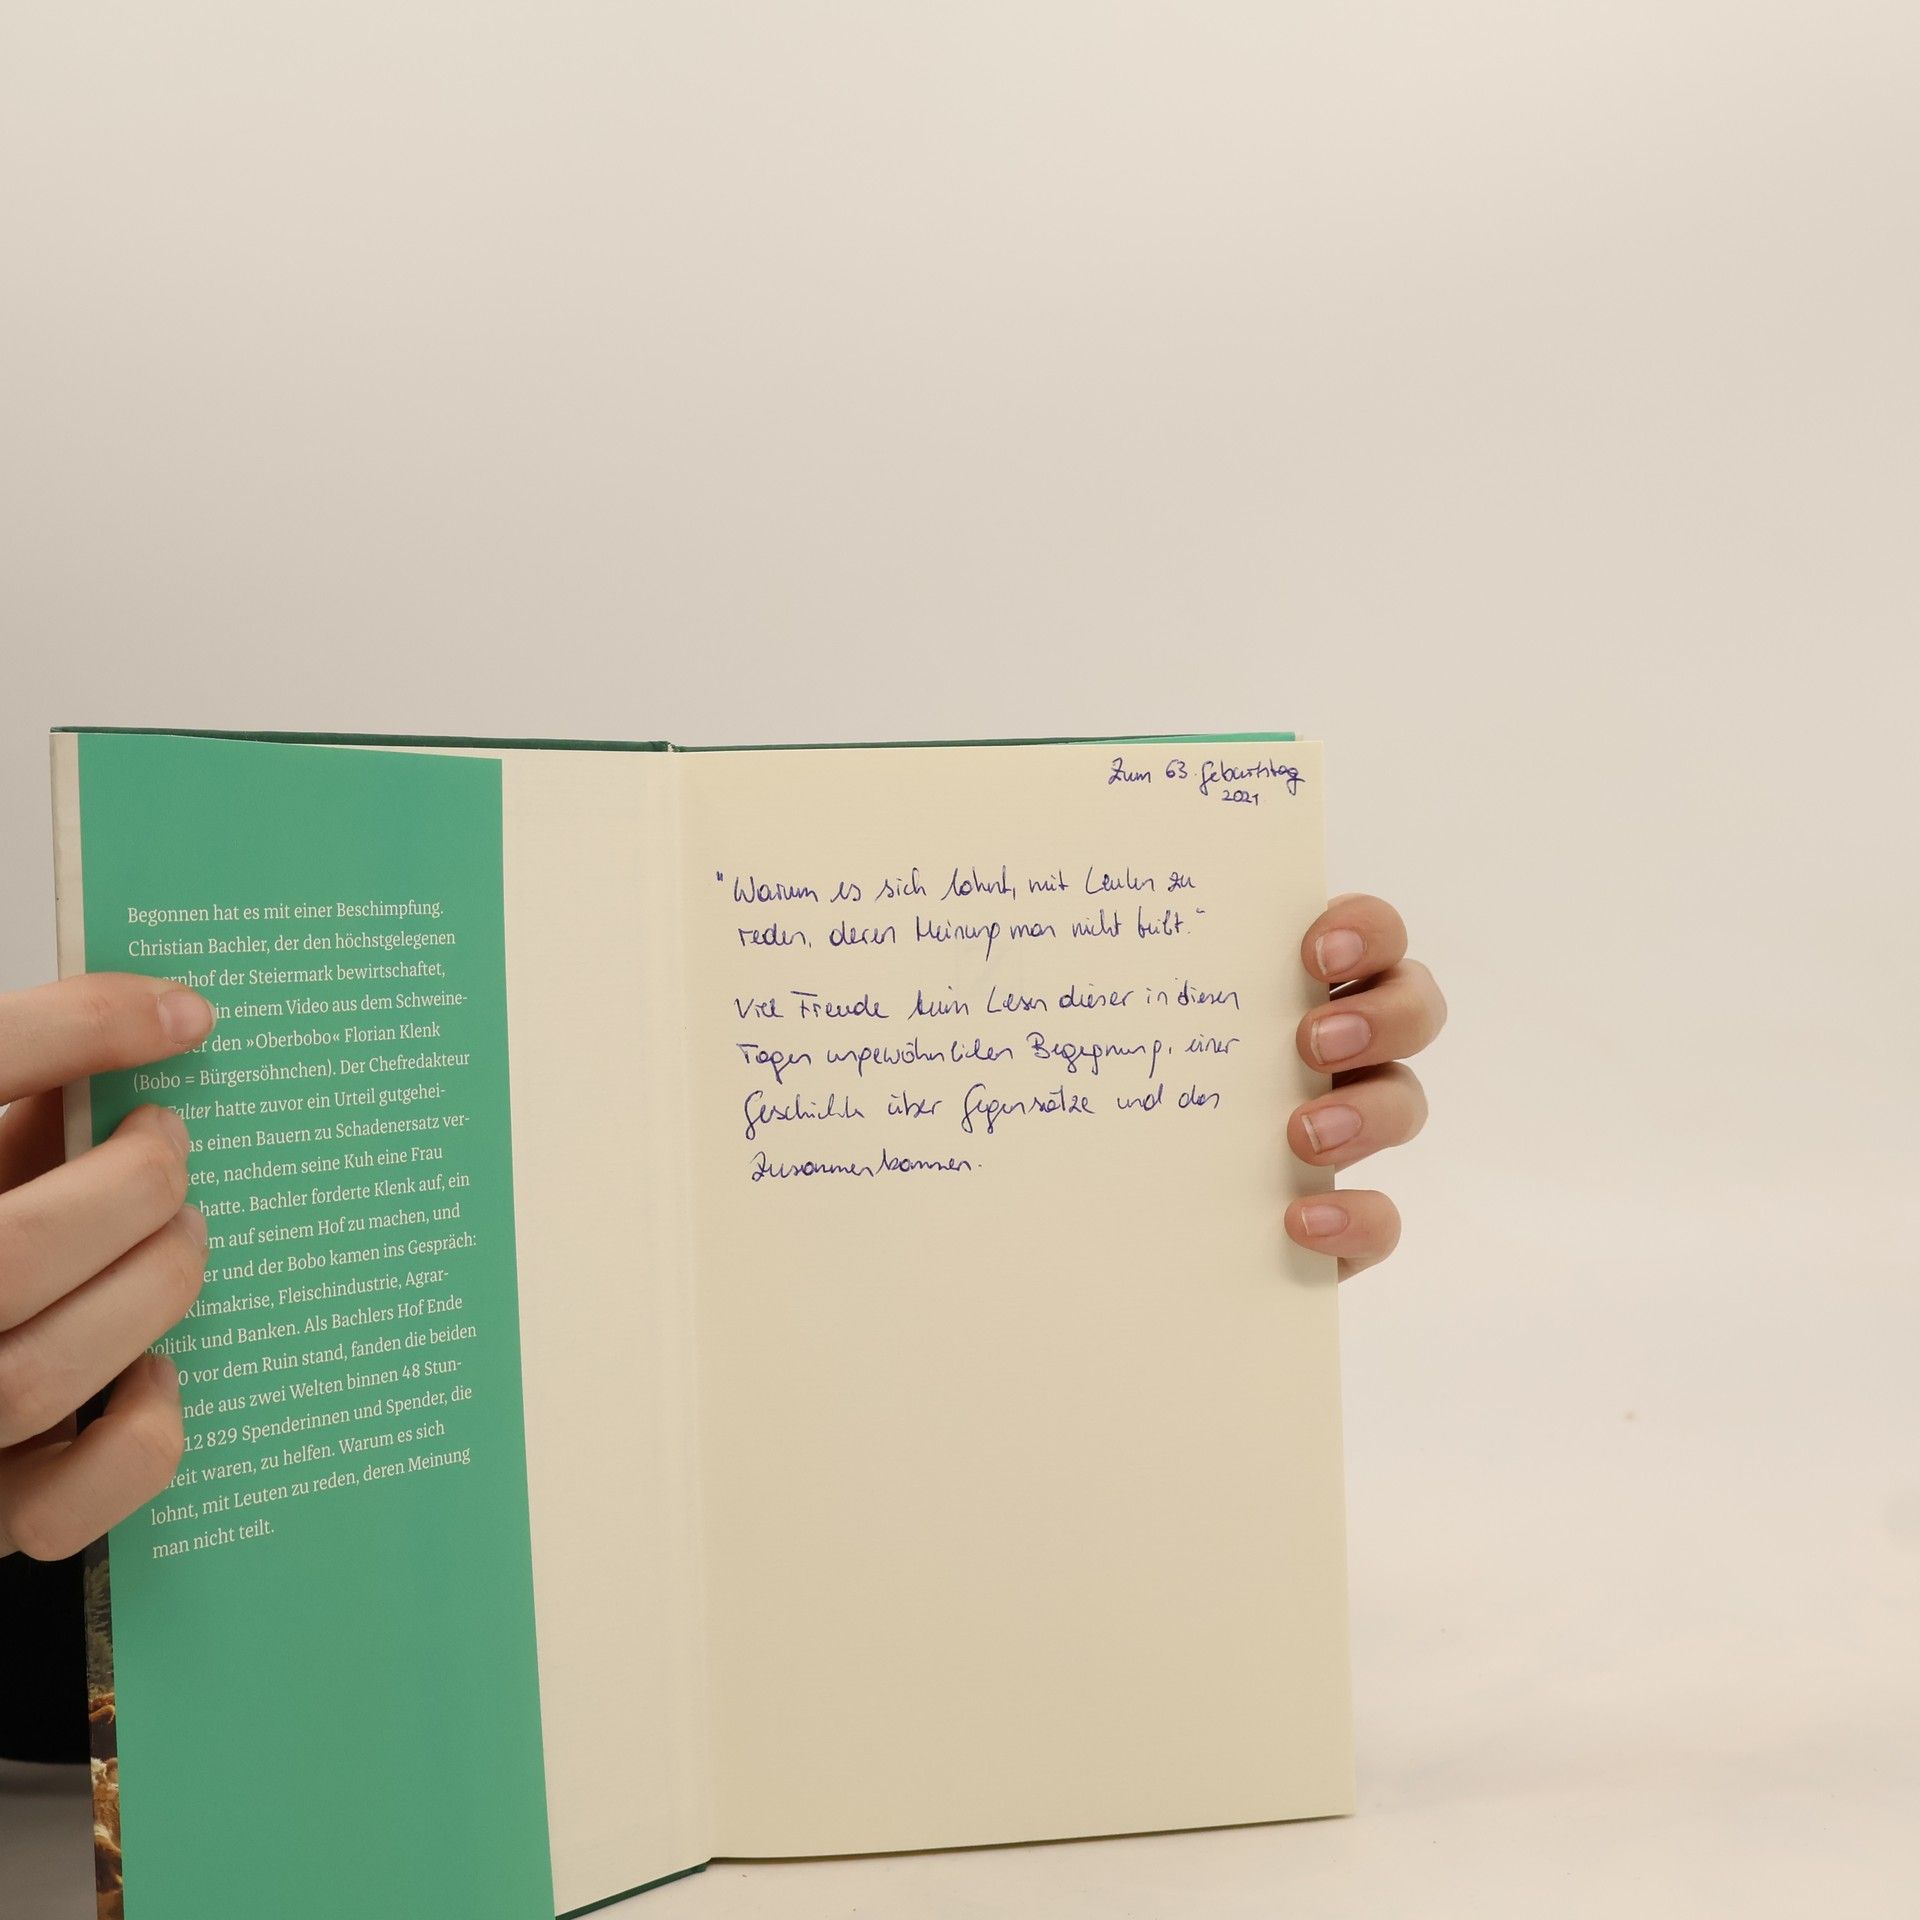 Begonnen hat es mit einer Beschimpfung.
Christian Bachler, der den höchstgelegenen
rnhof der Steiermark bewirtschaftet,
in einem Video aus dem Schweine-
er den »Oberbobo« Florian Klenk
(Bobo = Bürgersöhnchen). Der Chefredakteur
Falter hatte zuvor ein Urteil gutgehei-
as einen Bauern zu Schadenersatz ver-
tete, nachdem seine Kuh eine Frau
hatte. Bachler forderte Klenk auf, ein
m auf seinem Hof zu machen, und
er und der Bobo kamen ins Gespräch:
Klimakrise, Fleischindustrie, Agrar-
politik und Banken. Als Bachlers Hof Ende
0 vor dem Ruin stand, fanden die beiden
nde aus zwei Welten binnen 48 Stun-
12 829 Spenderinnen und Spender, die
reit waren, zu helfen. Warum es sich
lohnt, mit Leuten zu reden, deren Meinung
man nicht teilt.
Zum 63. Geburtstag
2021
"Warum es sich lohnt, mit Leuten zu
reden, deren Meinung man nicht teilt."
Viel Freude beim Lesen dieser in diesen
Tagen ungewöhnlichen Begegnung, einer
Geschichte über Gegensätze und das
Zusammenkommen.